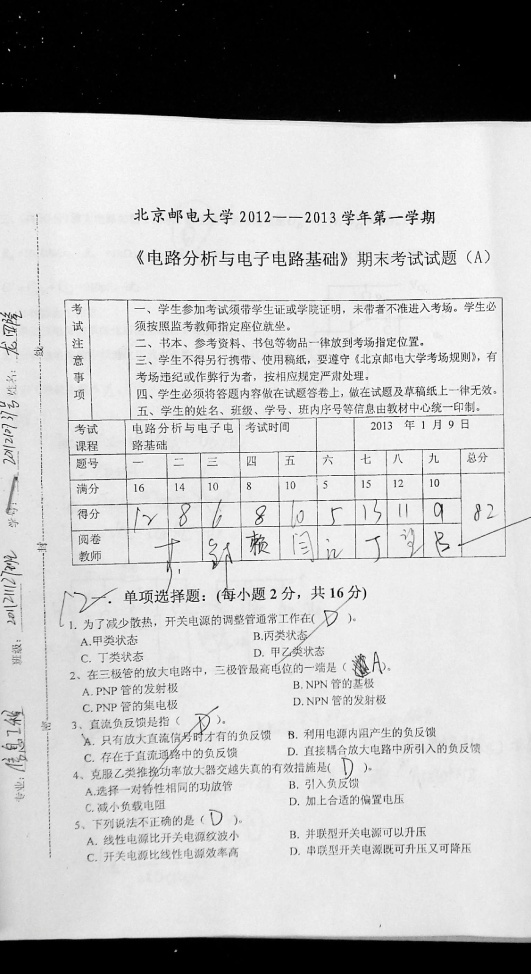 北京邮电大学2012——2013学年第一学期
《电路分析与电子电路基础》期末考试试题（A）
考试注意事项
一、学生参加考试须带学生证或学院证明，未带者不准进入考场。学生必
须按照监考教师指定座位就坐。
二、书本、参考资料、书包等物品一律放到考场指定位置。
三、学生不得另行携带、使用稿纸，要遵守《北京邮电大学考场规则》，有
考场违纪或作弊行为者，按相应规定严肃处理。
四、学生必须将答题内容做在试题答卷上，做在试题及草稿纸上一律无效。
五、学生的姓名、班级、学号、班内序号等信息由教材中心统一印制。
考试课程 电路分析与电子电路基础 考试时间 2013 年 1 月 9 日
题号 一 二 三 四 五 六 七 八 九 总分
满分 16 14 10 8 10 5 15 12 10
得分 12 8 6 8 10 5 13 11 9 82
阅卷教师
12 一．单项选择题：(每小题 2 分，共 16 分)
1. 为了减少散热，开关电源的调整管通常工作在( D )。
A.甲类状态 B.丙类状态
C. 丁类状态 D. 甲乙类状态
2、在三极管的放大电路中，三极管最高电位的一端是（ A ）。
A. PNP 管的发射极 B. NPN 管的基极
C. PNP 管的集电极 D. NPN 管的发射极
3、直流负反馈是指（ D ）。
A. 只有放大直流信号时才有的负反馈 B. 利用电源内阻产生的负反馈
C. 存在于直流通路中的负反馈 D. 直接耦合放大电路中所引入的负反馈
4、克服乙类推挽功率放大器交越失真的有效措施是( D )。
A.选择一对特性相同的功放管 B. 引入负反馈
C. 减小负载电阻 D. 加上合适的偏置电压
5、下列说法不正确的是（ D ）。
A. 线性电源比开关电源纹波小 B. 并联型开关电源可以升压
C. 开关电源比线性电源效率高 D. 串联型开关电源既可升压又可降压
专业：信息工程
班级：
学号：
姓名：
密
封
线